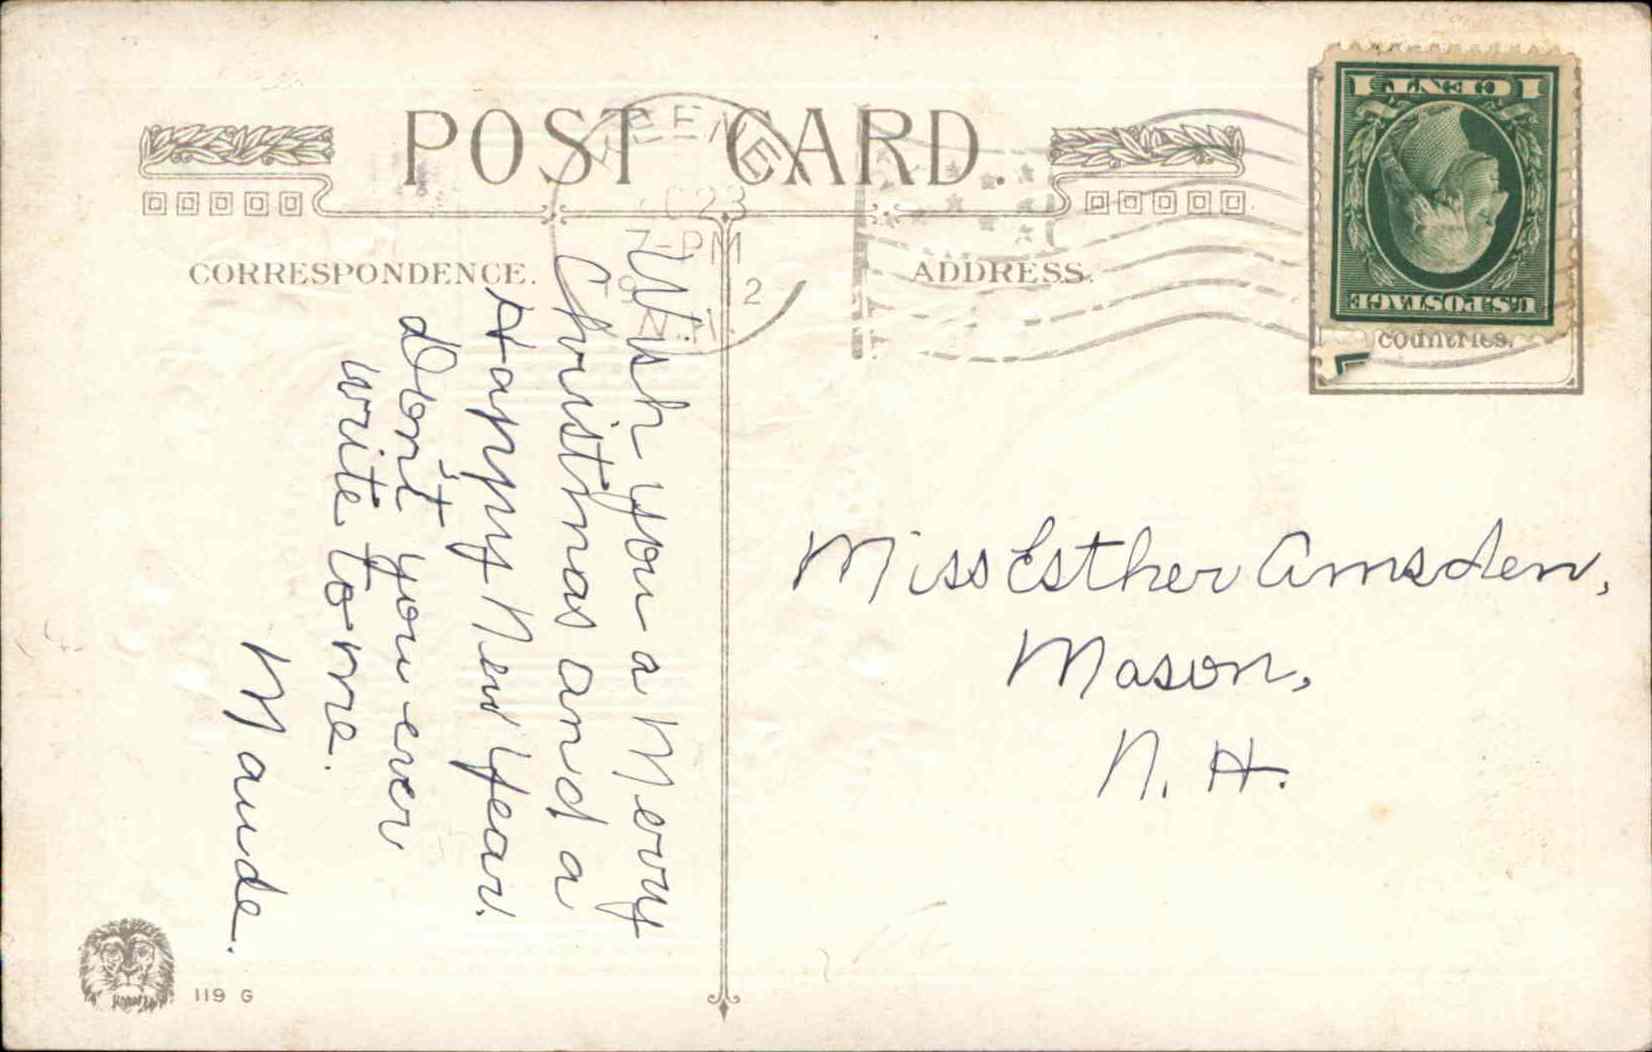 POST CARD.
CORRESPONDENCE.
ADDRESS.
KEENE
C 23
7-PM
2
N.H.
1 CENT 1
U.S. POSTAGE
countries.
Wish you a Merry
Christmas and a
Happy New Year.
Don't you ever
write to me.
Maude.
Miss Esther Amsden,
Mason,
N. H.
119 G